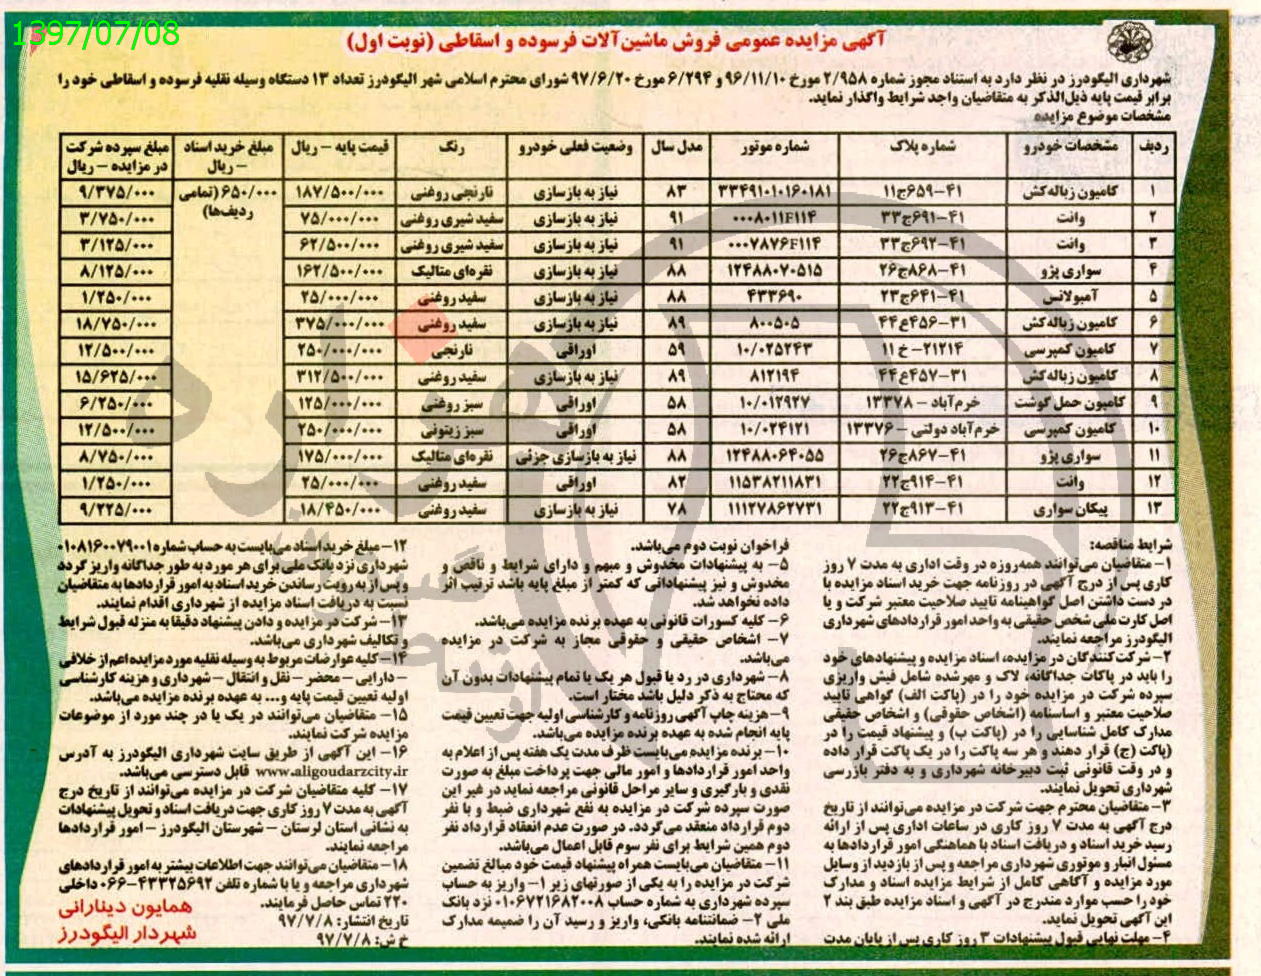 1397/07/08
آگهی مزایده عمومی فروش ماشین‌آلات فرسوده و اسقاطی (نوبت اول)
شهرداری الیگودرز در نظر دارد به استناد مجوز شماره ۲/۹۵۸ مورخ ۹۶/۱۱/۱۰ و ۶/۲۹۴ مورخ ۹۷/۶/۲۰ شورای محترم اسلامی شهر الیگودرز تعداد ۱۳ دستگاه وسیله نقلیه فرسوده و اسقاطی خود را
برابر قیمت پایه ذیل‌الذکر به متقاضیان واجد شرایط واگذار نماید.
مشخصات موضوع مزایده
ردیف مشخصات خودرو شماره پلاک شماره موتور مدل سال وضعیت فعلی خودرو رنگ قیمت پایه – ریال مبلغ خرید اسناد – ریال مبلغ سپرده شرکت در مزایده – ریال
۱ کامیون زباله‌کش ۴۱–۶۵۹ج۱۱ ۳۳۴۹۱۰۱۰۱۶۰۱۸۱ ۸۳ نیاز به بازسازی نارنجی روغنی ۱۸۷/۵۰۰/۰۰۰ ۶۵۰/۰۰۰ (تمامی ردیف‌ها) ۹/۳۷۵/۰۰۰
۲ وانت ۴۱–۶۹۱ج۳۳ ۰۰۰۸۰۱۱F۱۱۴ ۹۱ نیاز به بازسازی سفید شیری روغنی ۷۵/۰۰۰/۰۰۰ ۳/۷۵۰/۰۰۰
۳ وانت ۴۱–۶۹۲ج۳۳ ۰۰۰۷۸۷۶F۱۱۴ ۹۱ نیاز به بازسازی سفید شیری روغنی ۶۲/۵۰۰/۰۰۰ ۳/۱۲۵/۰۰۰
۴ سواری پژو ۴۱–۸۶۸ج۲۶ ۱۲۴۸۸۰۷۰۵۱۵ ۸۸ نیاز به بازسازی نقره‌ای متالیک ۱۶۲/۵۰۰/۰۰۰ ۸/۱۲۵/۰۰۰
۵ آمبولانس ۴۱–۶۴۱ج۲۳ ۴۳۳۶۹۰ ۸۸ نیاز به بازسازی سفید روغنی ۲۵/۰۰۰/۰۰۰ ۱/۲۵۰/۰۰۰
۶ کامیون زباله‌کش ۳۱–۴۵۶ع۴۴ ۸۰۰۵۰۵ ۸۹ نیاز به بازسازی سفید روغنی ۳۷۵/۰۰۰/۰۰۰ ۱۸/۷۵۰/۰۰۰
۷ کامیون کمپرسی ۲۱۲۱۴–خ ۱۱ ۱۰/۰۲۵۲۴۳ ۵۹ اوراقی نارنجی ۲۵۰/۰۰۰/۰۰۰ ۱۲/۵۰۰/۰۰۰
۸ کامیون زباله‌کش ۳۱–۴۵۷ع۴۴ ۸۱۲۱۹۴ ۸۹ نیاز به بازسازی سفید روغنی ۳۱۲/۵۰۰/۰۰۰ ۱۵/۶۲۵/۰۰۰
۹ کامیون حمل گوشت خرم‌آباد – ۱۳۳۷۸ ۱۰/۰۱۲۹۲۷ ۵۸ اوراقی سبز روغنی ۱۲۵/۰۰۰/۰۰۰ ۶/۲۵۰/۰۰۰
۱۰ کامیون کمپرسی خرم‌آباد دولتی – ۱۳۳۷۶ ۱۰/۰۲۴۱۲۱ ۵۸ اوراقی سبز زیتونی ۲۵۰/۰۰۰/۰۰۰ ۱۲/۵۰۰/۰۰۰
۱۱ سواری پژو ۴۱–۸۶۷ج۲۶ ۱۲۴۸۸۰۶۴۰۵۵ ۸۸ نیاز به بازسازی جزئی نقره‌ای متالیک ۱۷۵/۰۰۰/۰۰۰ ۸/۷۵۰/۰۰۰
۱۲ وانت ۴۱–۹۱۴ج۲۲ ۱۱۵۳۸۲۱۱۸۳۱ ۸۲ اوراقی سفید روغنی ۲۵/۰۰۰/۰۰۰ ۱/۲۵۰/۰۰۰
۱۳ پیکان سواری ۴۱–۹۱۳ج۲۲ ۱۱۱۲۷۸۶۲۷۳۱ ۷۸ نیاز به بازسازی سفید روغنی ۱۸/۴۵۰/۰۰۰ ۹/۲۲۵/۰۰۰
شرایط مناقصه:
۱– متقاضیان می‌توانند همه‌روزه در وقت اداری به مدت ۷ روز
کاری پس از درج آگهی در روزنامه جهت خرید اسناد مزایده با
در دست داشتن اصل گواهینامه تایید صلاحیت معتبر شرکت و یا
اصل کارت ملی شخص حقیقی به واحد امور قراردادهای شهرداری
الیگودرز مراجعه نمایند.
۲– شرکت‌کنندگان در مزایده، اسناد مزایده و پیشنهادهای خود
را باید در پاکات جداگانه، لاک و مهرشده شامل فیش واریزی
سپرده شرکت در مزایده خود را در (پاکت الف) گواهی تایید
صلاحیت معتبر و اساسنامه (اشخاص حقوقی) و اشخاص حقیقی
مدارک کامل شناسایی را در (پاکت ب) و پیشنهاد قیمت را در
(پاکت ج) قرار دهند و هر سه پاکت را در یک پاکت قرار داده
و در وقت قانونی ثبت دبیرخانه شهرداری و به دفتر بازرسی
شهرداری تحویل نمایند.
۳– متقاضیان محترم جهت شرکت در مزایده می‌توانند از تاریخ
درج آگهی به مدت ۷ روز کاری در ساعات اداری پس از ارائه
رسید خرید اسناد و دریافت اسناد با هماهنگی امور قراردادها به
مسئول انبار و موتوری شهرداری مراجعه و پس از بازدید از وسایل
مورد مزایده و آگاهی کامل از شرایط مزایده اسناد و مدارک
خود را حسب موارد مندرج در آگهی و اسناد مزایده طبق بند ۲
این آگهی تحویل نماید.
۴– مهلت نهایی قبول پیشنهادات ۳ روز کاری پس از پایان مدت
فراخوان نوبت دوم می‌باشد.
۵– به پیشنهادات مخدوش و مبهم و دارای شرایط و ناقص و
مخدوش و نیز پیشنهاداتی که کمتر از مبلغ پایه باشد ترتیب اثر
داده نخواهد شد.
۶– کلیه کسورات قانونی به عهده برنده مزایده می‌باشد.
۷– اشخاص حقیقی و حقوقی مجاز به شرکت در مزایده
می‌باشد.
۸– شهرداری در رد یا قبول هر یک یا تمام پیشنهادات بدون آن
که محتاج به ذکر دلیل باشد مختار است.
۹– هزینه چاپ آگهی روزنامه و کارشناسی اولیه جهت تعیین قیمت
پایه انجام شده به عهده برنده مزایده می‌باشد.
۱۰– برنده مزایده می‌بایست ظرف مدت یک هفته پس از اعلام به
واحد امور قراردادها و امور مالی جهت پرداخت مبلغ به صورت
نقدی و بارگیری و سایر مراحل قانونی مراجعه نماید در غیر این
صورت سپرده شرکت در مزایده به نفع شهرداری ضبط و با نفر
دوم قرارداد منعقد می‌گردد. در صورت عدم انعقاد قرارداد نفر
دوم همین شرایط برای نفر سوم قابل اعمال می‌باشد.
۱۱– متقاضیان می‌بایست همراه پیشنهاد قیمت خود مبالغ تضمین
شرکت در مزایده را به یکی از صورتهای زیر ۱– واریز به حساب
سپرده شهرداری به شماره حساب ۰۱۰۶۷۲۱۶۸۲۰۰۸ نزد بانک
ملی ۲– ضمانتنامه بانکی، واریز و رسید آن را ضمیمه مدارک
ارائه شده نمایند.
۱۲– مبلغ خرید اسناد می‌بایست به حساب شماره ۰۱۰۸۱۶۰۰۷۹۰۰۱
شهرداری نزد بانک ملی برای هر مورد به طور جداگانه واریز گردد
و پس از به رویت رساندن خرید اسناد به امور قراردادها به متقاضیان
نسبت به دریافت اسناد مزایده از شهرداری اقدام نمایند.
۱۳– شرکت در مزایده و دادن پیشنهاد دقیقا به منزله قبول شرایط
و تکالیف شهرداری می‌باشد.
۱۴– کلیه عوارضات مربوط به وسیله نقلیه مورد مزایده اعم از خلافی
– دارایی – محضر – نقل و انتقال – شهرداری و هزینه کارشناسی
اولیه تعیین قیمت پایه و... به عهده برنده مزایده می‌باشد.
۱۵– متقاضیان می‌توانند در یک یا در چند مورد از موضوعات
مزایده شرکت نمایند.
۱۶– این آگهی از طریق سایت شهرداری الیگودرز به آدرس
www.aligoudarzcity.ir قابل دسترسی می‌باشد.
۱۷– کلیه متقاضیان شرکت در مزایده می‌توانند از تاریخ درج
آگهی به مدت ۷ روز کاری جهت دریافت اسناد و تحویل پیشنهادات
به نشانی استان لرستان – شهرستان الیگودرز – امور قراردادها
مراجعه نمایند.
۱۸– متقاضیان می‌توانند جهت اطلاعات بیشتر به امور قراردادهای
شهرداری مراجعه و یا با شماره تلفن ۴۳۳۲۵۶۹۲–۰۶۶ داخلی
۲۲۰ تماس حاصل فرمایند.
تاریخ انتشار: ۹۷/۷/۸
خ ش: ۹۷/۷/۸
همایون دینارانی
شهردار الیگودرز